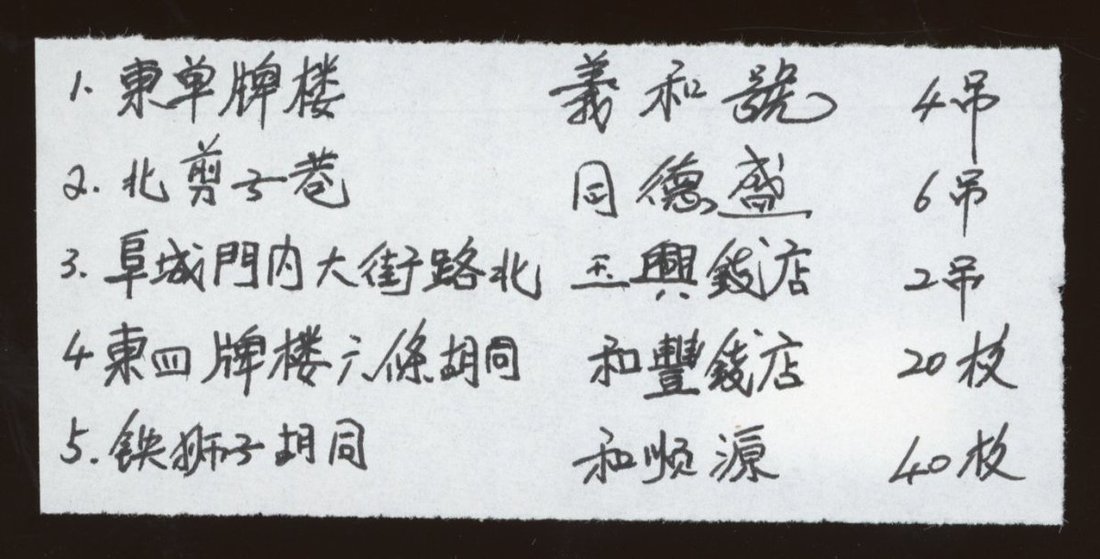 1. 東单牌楼 義和號 4吊
2. 北剪子巷 同德盛 6吊
3. 阜城門内大街路北 玉興錢店 2吊
4 東四牌楼六條胡同 和豐錢店 20枚
5. 鉄狮子胡同 和顺源 40枚